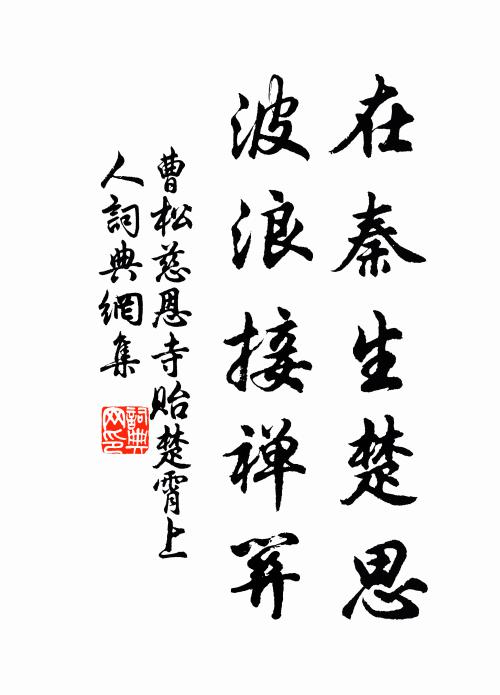 在秦生楚思
波浪接禅關
曹松慈恩寺貽楚霄上
人詞典網集
詞典
网印